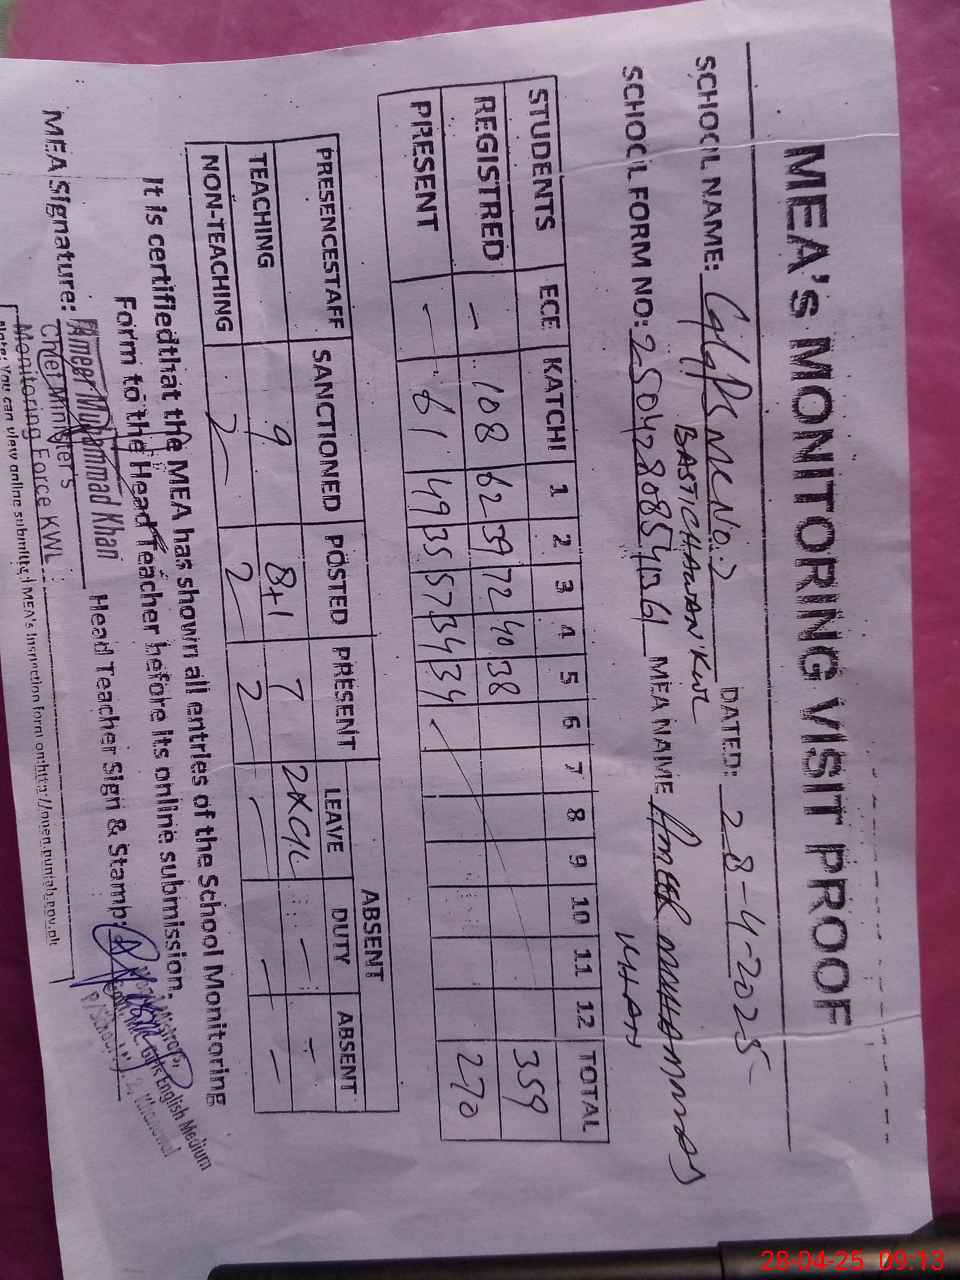 MEA's MONITORING VISIT PROOF
SCHOOL NAME: GGPS MC No:2 DATED: 28-4-2025
BASTI CHAWAN KWL
SCHOOL FORM NO: MEA NAME AMEER MUHAMMAD
KHAN
STUDENTS ECE KATCHI 1 2 3 4 5 6 7 8 9 10 11 12 TOTAL
REGISTRED - 108 62 39 72 40 38 359
PRESENT - 61 49 35 57 34 34 270
PRESENCESTAFF SANCTIONED POSTED PRESENT ABSENT
LEAVE DUTY ABSENT
TEACHING 9 8+1 7 2XC/L - -
NON-TEACHING 2 2 2 - - -
It is certifiedthat the MEA has shown all entries of the School Monitoring
Form to the Head Teacher before its online submission.
MEA Signature: Head Teacher Sign & Stamp:
Ameer Muhammad Khan
Chief Minister's
Monitoring Force KWL
Girls English Medium
Note: You can view online submitted MEA's Inspection form on:
28-04-25 09:13